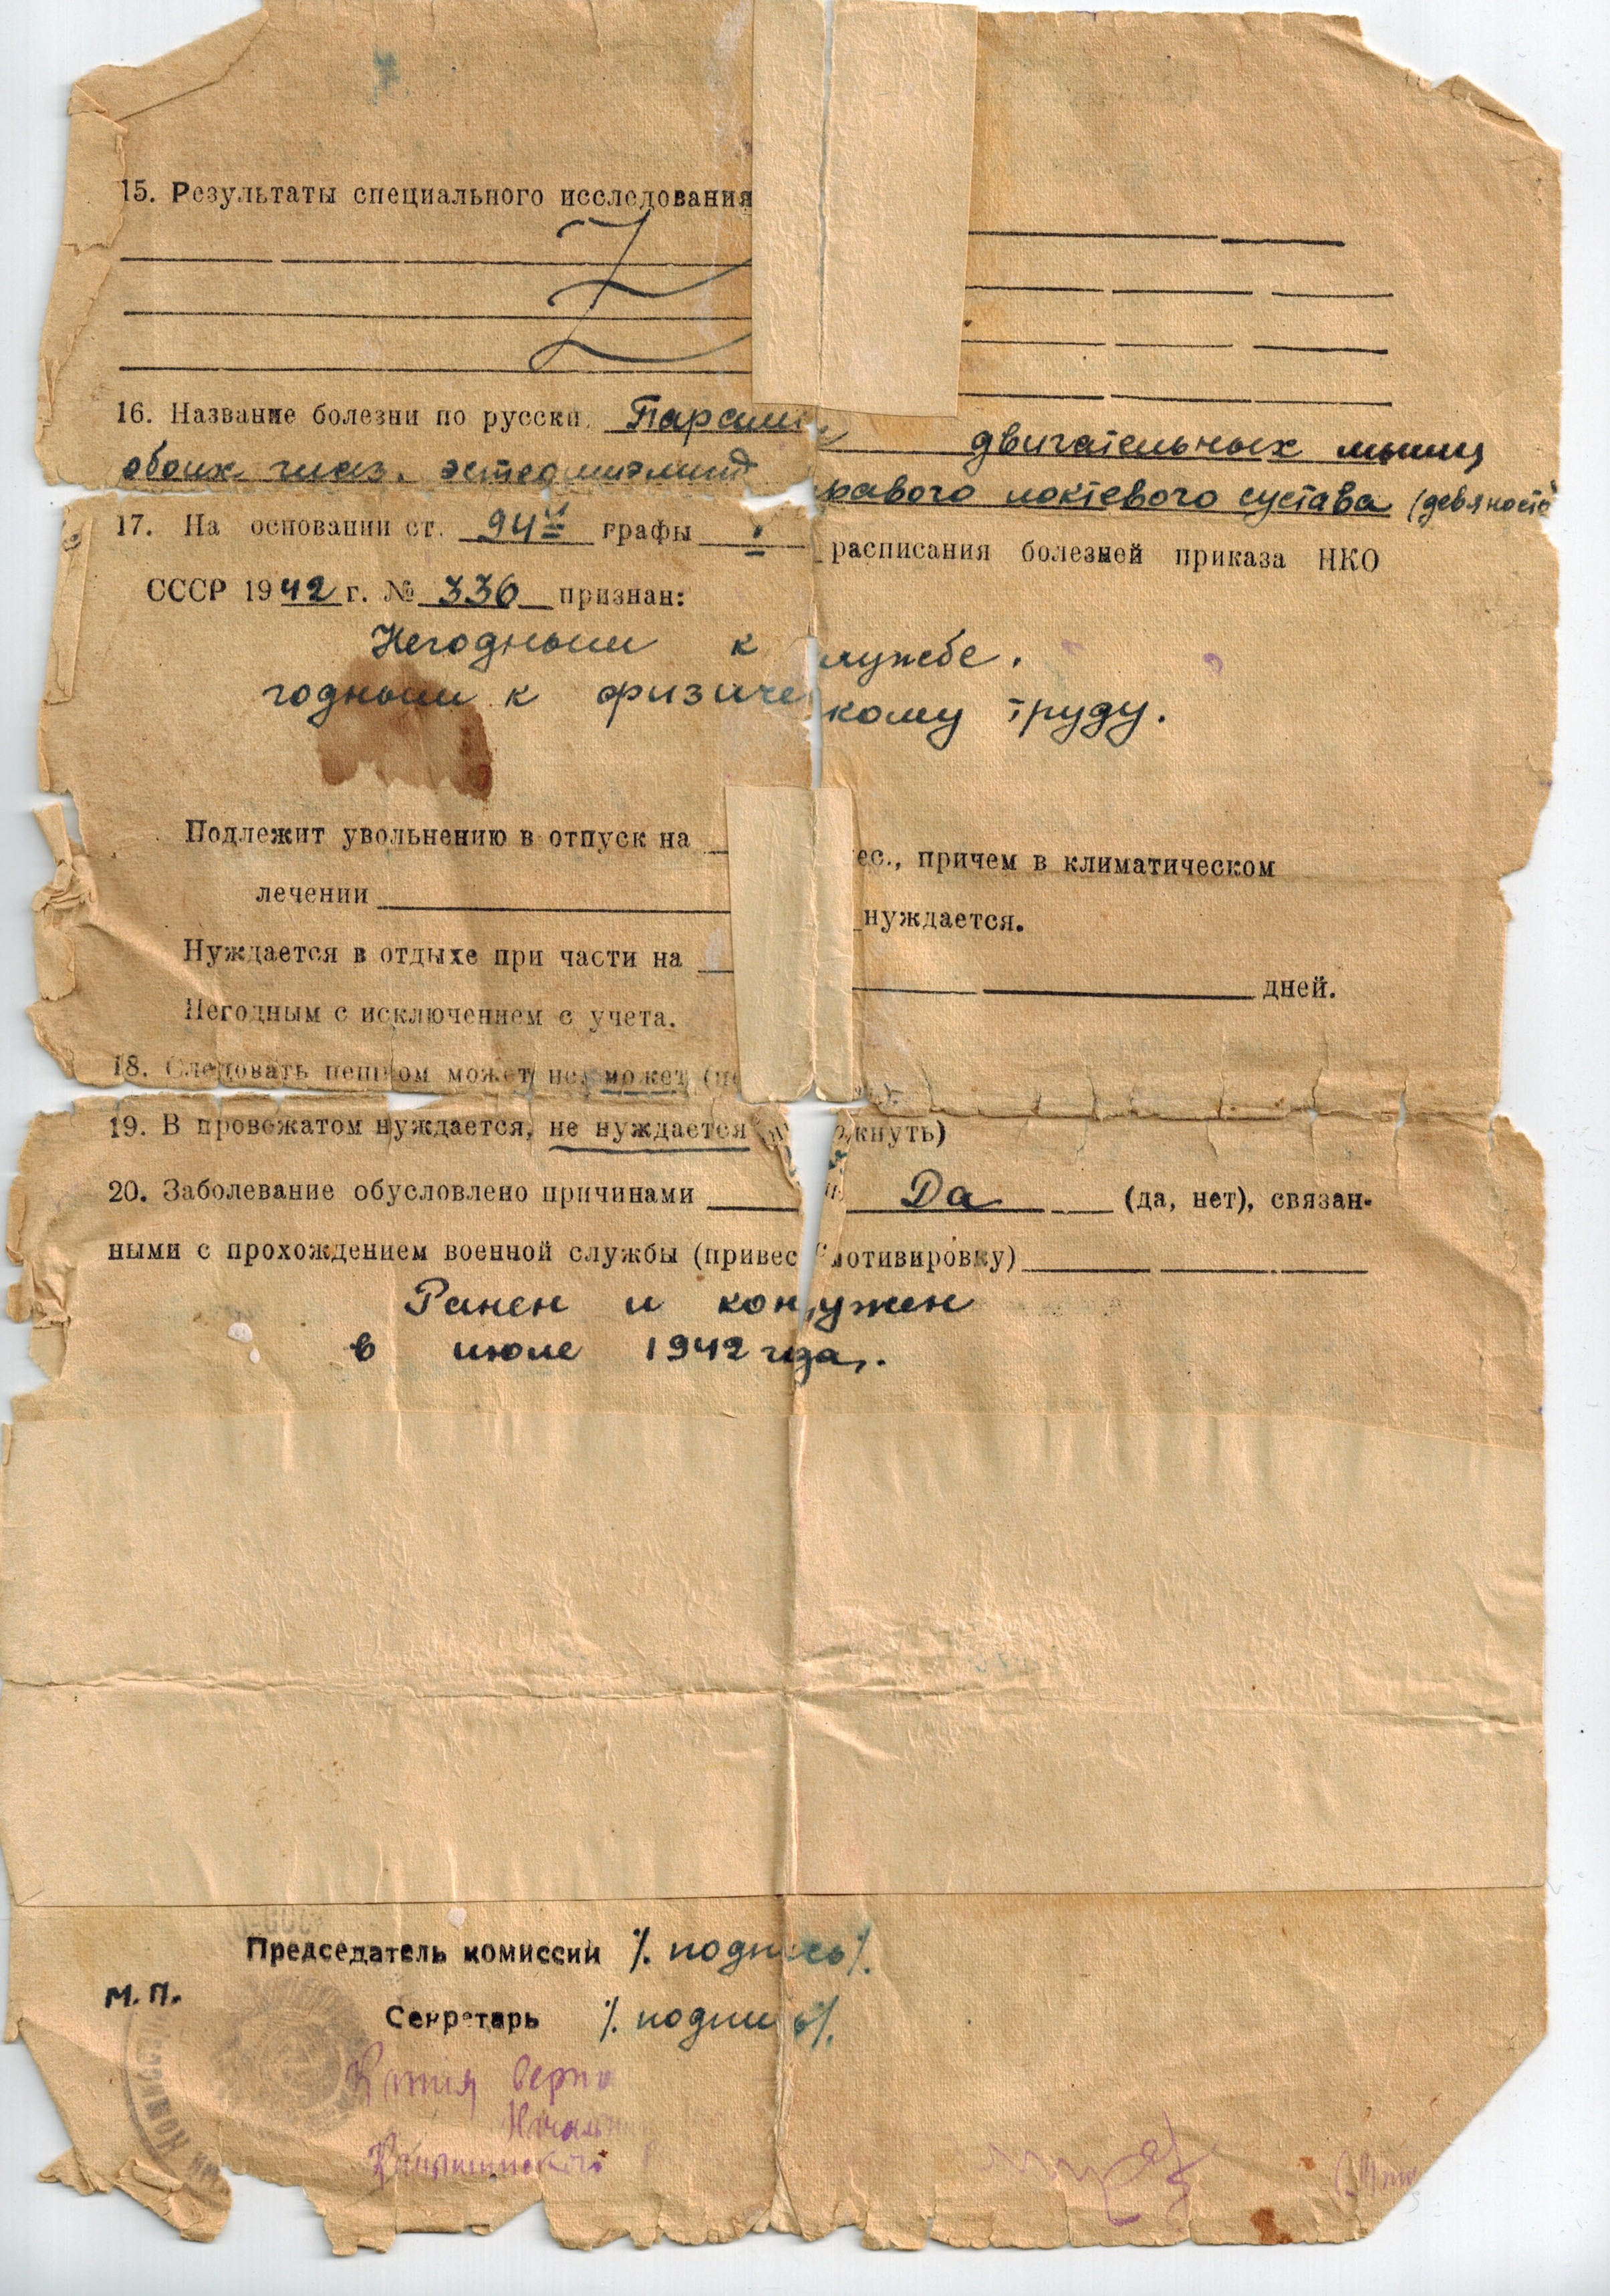 15. Результаты специального исследования
16. Название болезни по русски. двигательных мышц
обоих глаз. остеомиэлит равого локтевого сустава (девяносто
17. На основании ст. 94й графы расписания болезней приказа НКО
СССР 1942 г. № 336 признан:
Негодным к лужбе.
годным к физиче кому труду.
Подлежит увольнению в отпуск на ес., причем в климатическом
лечении нуждается.
Нуждается в отдыхе при части на дней.
Негодным с исключением с учета.
18. Следовать пешком может, не может
19. В провожатом нуждается, не нуждается кнуть)
20. Заболевание обусловлено причинами Да (да, нет), связан-
ными с прохождением военной службы (привес мотивировку)
Ранен и контужен
в июле 1942 года.
Председатель комиссии /. подпись/.
М. П.
Секретарь /. подпись/.
Копия верна
Началь